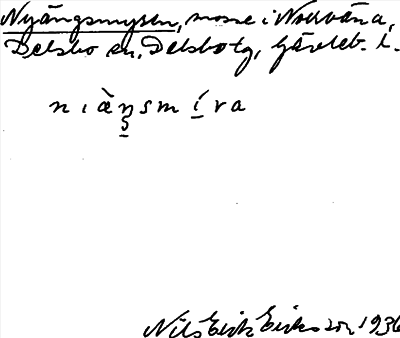 Nyängsmyren, mosse i Norrväna,
Delsbo sn, Delsbo tg, Gävleb. l.
n ı ä̀ ŋ s m í̲ r a
Nils Erik Eriksson 1936